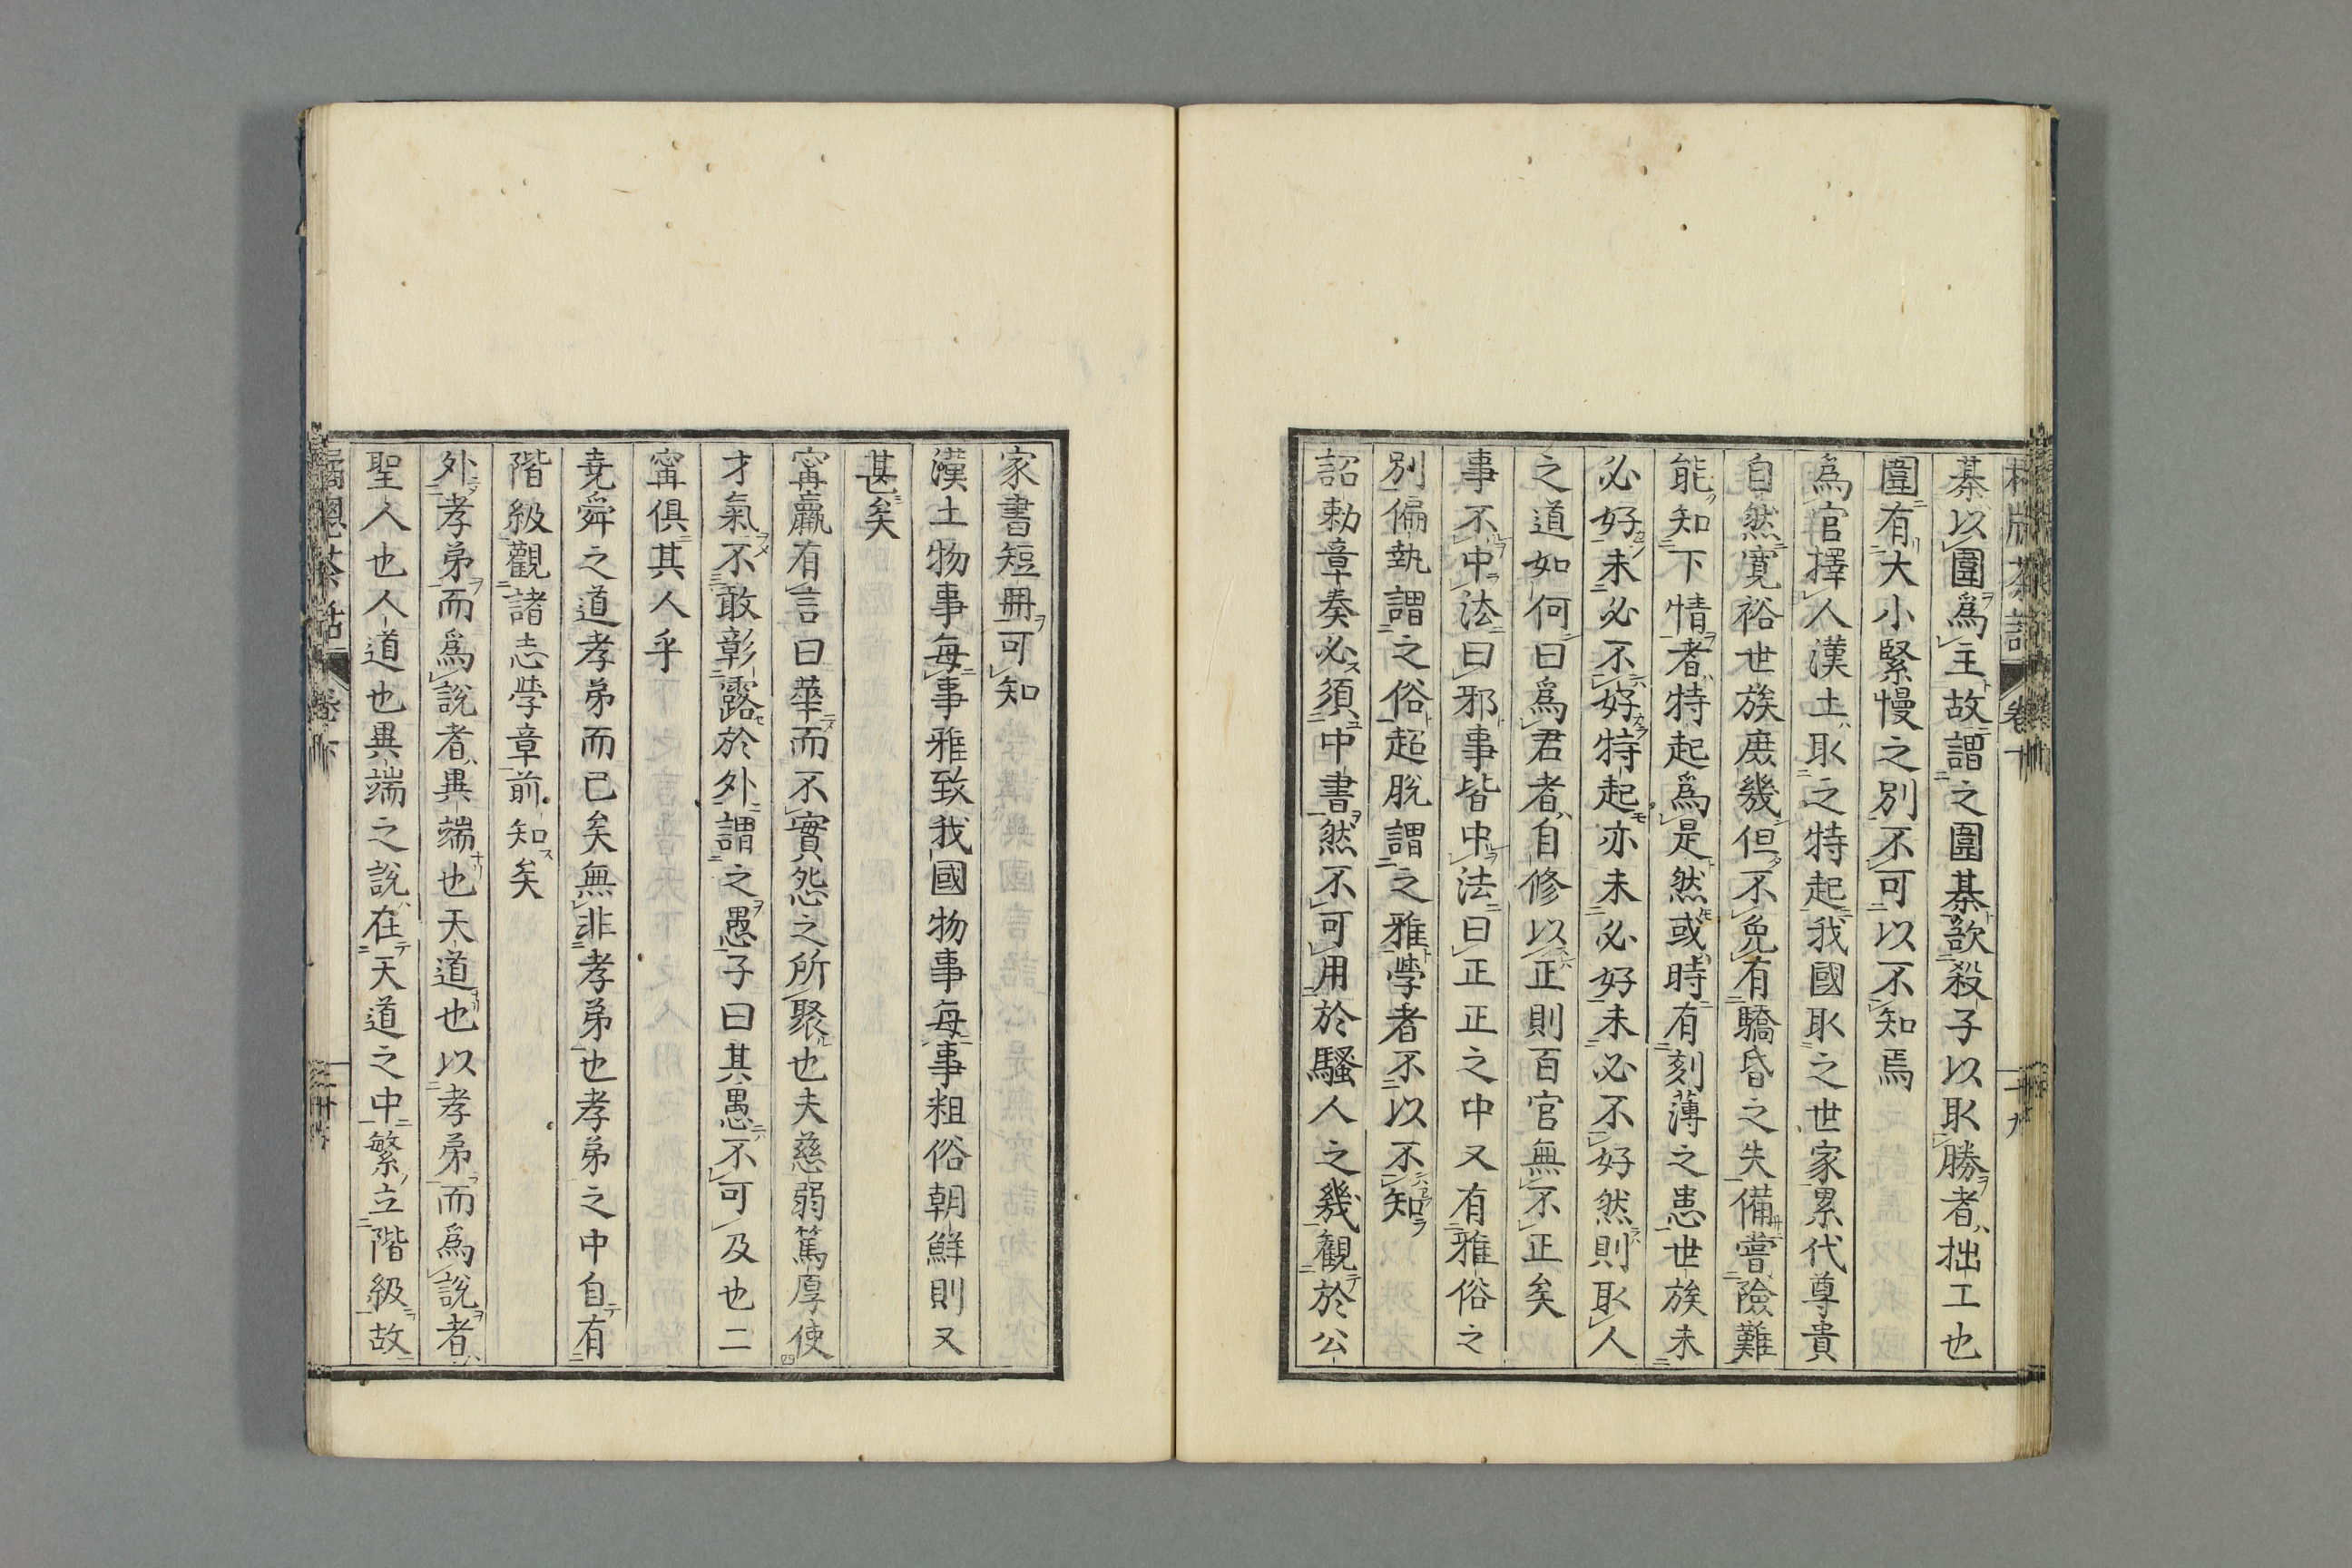 棊以圍爲主故謂之圍棊欲殺子以取勝者拙工也
圍有大小緊慢之別不可以不知焉
爲官擇人漢土取之特起我國取之世家累代尊貴
自然寬裕世族庶幾但不免有驕昏之失備嘗險難
能知下情者特起爲是然或時有刻薄之患世族未
必好未必不好特起亦未必好未必不好然則取人
之道如何曰爲君者自修以正則百官無不正矣
事不中法曰邪事皆中法曰正正之中又有雅俗之
別偏執謂之俗超脫謂之雅學者不以不知
詔勅章奏必須中書然不可用於騷人之幾觀於公
家書短冊可知
漢土物事每事雅致我國物事每事粗俗朝鮮則又
甚矣
甯嬴有言曰華而不實怨之所聚也夫慈弱篤厚使
才氣不敢彰露於外謂之愚子曰其愚不可及也二
甯俱其人乎
堯舜之道孝弟而已矣無非孝弟也孝弟之中自有
階級觀諸志學章前知矣
外孝弟而爲說者異端也天道也以孝弟而爲說者
聖人也人道也異端之說在天道之中繁立階級故